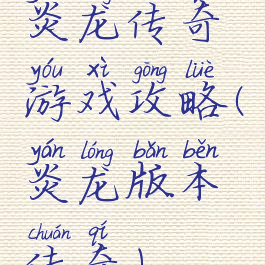 炎龙传奇
yóu xì gōng lüè
游戏攻略(
yán lóng bǎn běn
炎龙版本
chuán qí
传奇)